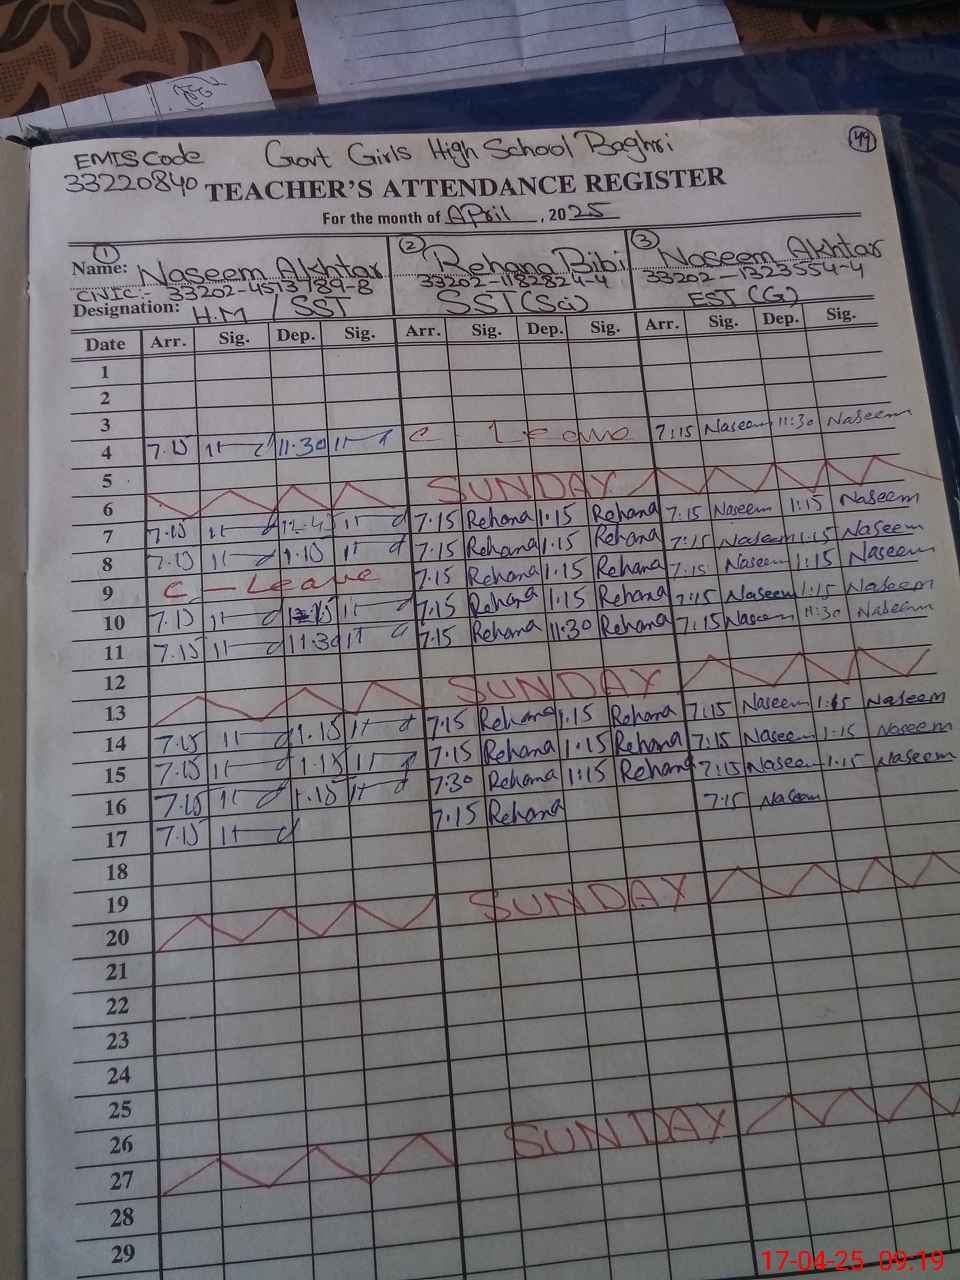 EMIS Code Govt Girls High School Baghri 49
33220840 TEACHER'S ATTENDANCE REGISTER
For the month of April, 2025
1 2 3
Name: Naseem Akhtar Rehana Bibi Naseem Akhtar
CNIC:- 33202-4513789-8 33202-1182824-4 33202-1323554-4
Designation: H.M / SST SST (Sci) EST (G)
Date Arr. Sig. Dep. Sig. Arr. Sig. Dep. Sig. Arr. Sig. Dep. Sig.
1
2
3
4 7.15 11.30 C - Leave 7:15 Naseem 11:30 Naseem
5
6 SUNDAY
7 7.15 7.15 Rehana 1.15 Rehana 7:15 Naseem 1:15 Naseem
8 7.15 1.15 7.15 Rehana 1.15 Rehana 7:15 Naseem 1:15 Naseem
9 C - Leave 7.15 Rehana 1.15 Rehana 7:15 Naseem 1:15 Naseem
10 7.15 7.15 Rehana 1.15 Rehana 7:15 Naseem 1:15 Naseem
11 7.15 11.30 7.15 Rehana 11:30 Rehana 7:15 Naseem 11:30 Naseem
12
13 SUNDAY
14 7.15 1.15 7.15 Rehana 1.15 Rehana 7:15 Naseem 1:15 Naseem
15 7.15 1.15 7.15 Rehana 1.15 Rehana 7:15 Naseem 1:15 Naseem
16 7.15 1.15 7.30 Rehana 1:15 Rehana 7:15 Naseem 1.15 Naseem
17 7.15 7.15 Rehana 7:15 Naseem
18
19
20 SUNDAY
21
22
23
24
25
26
27 SUNDAY
28
29
17-04-25 09:19